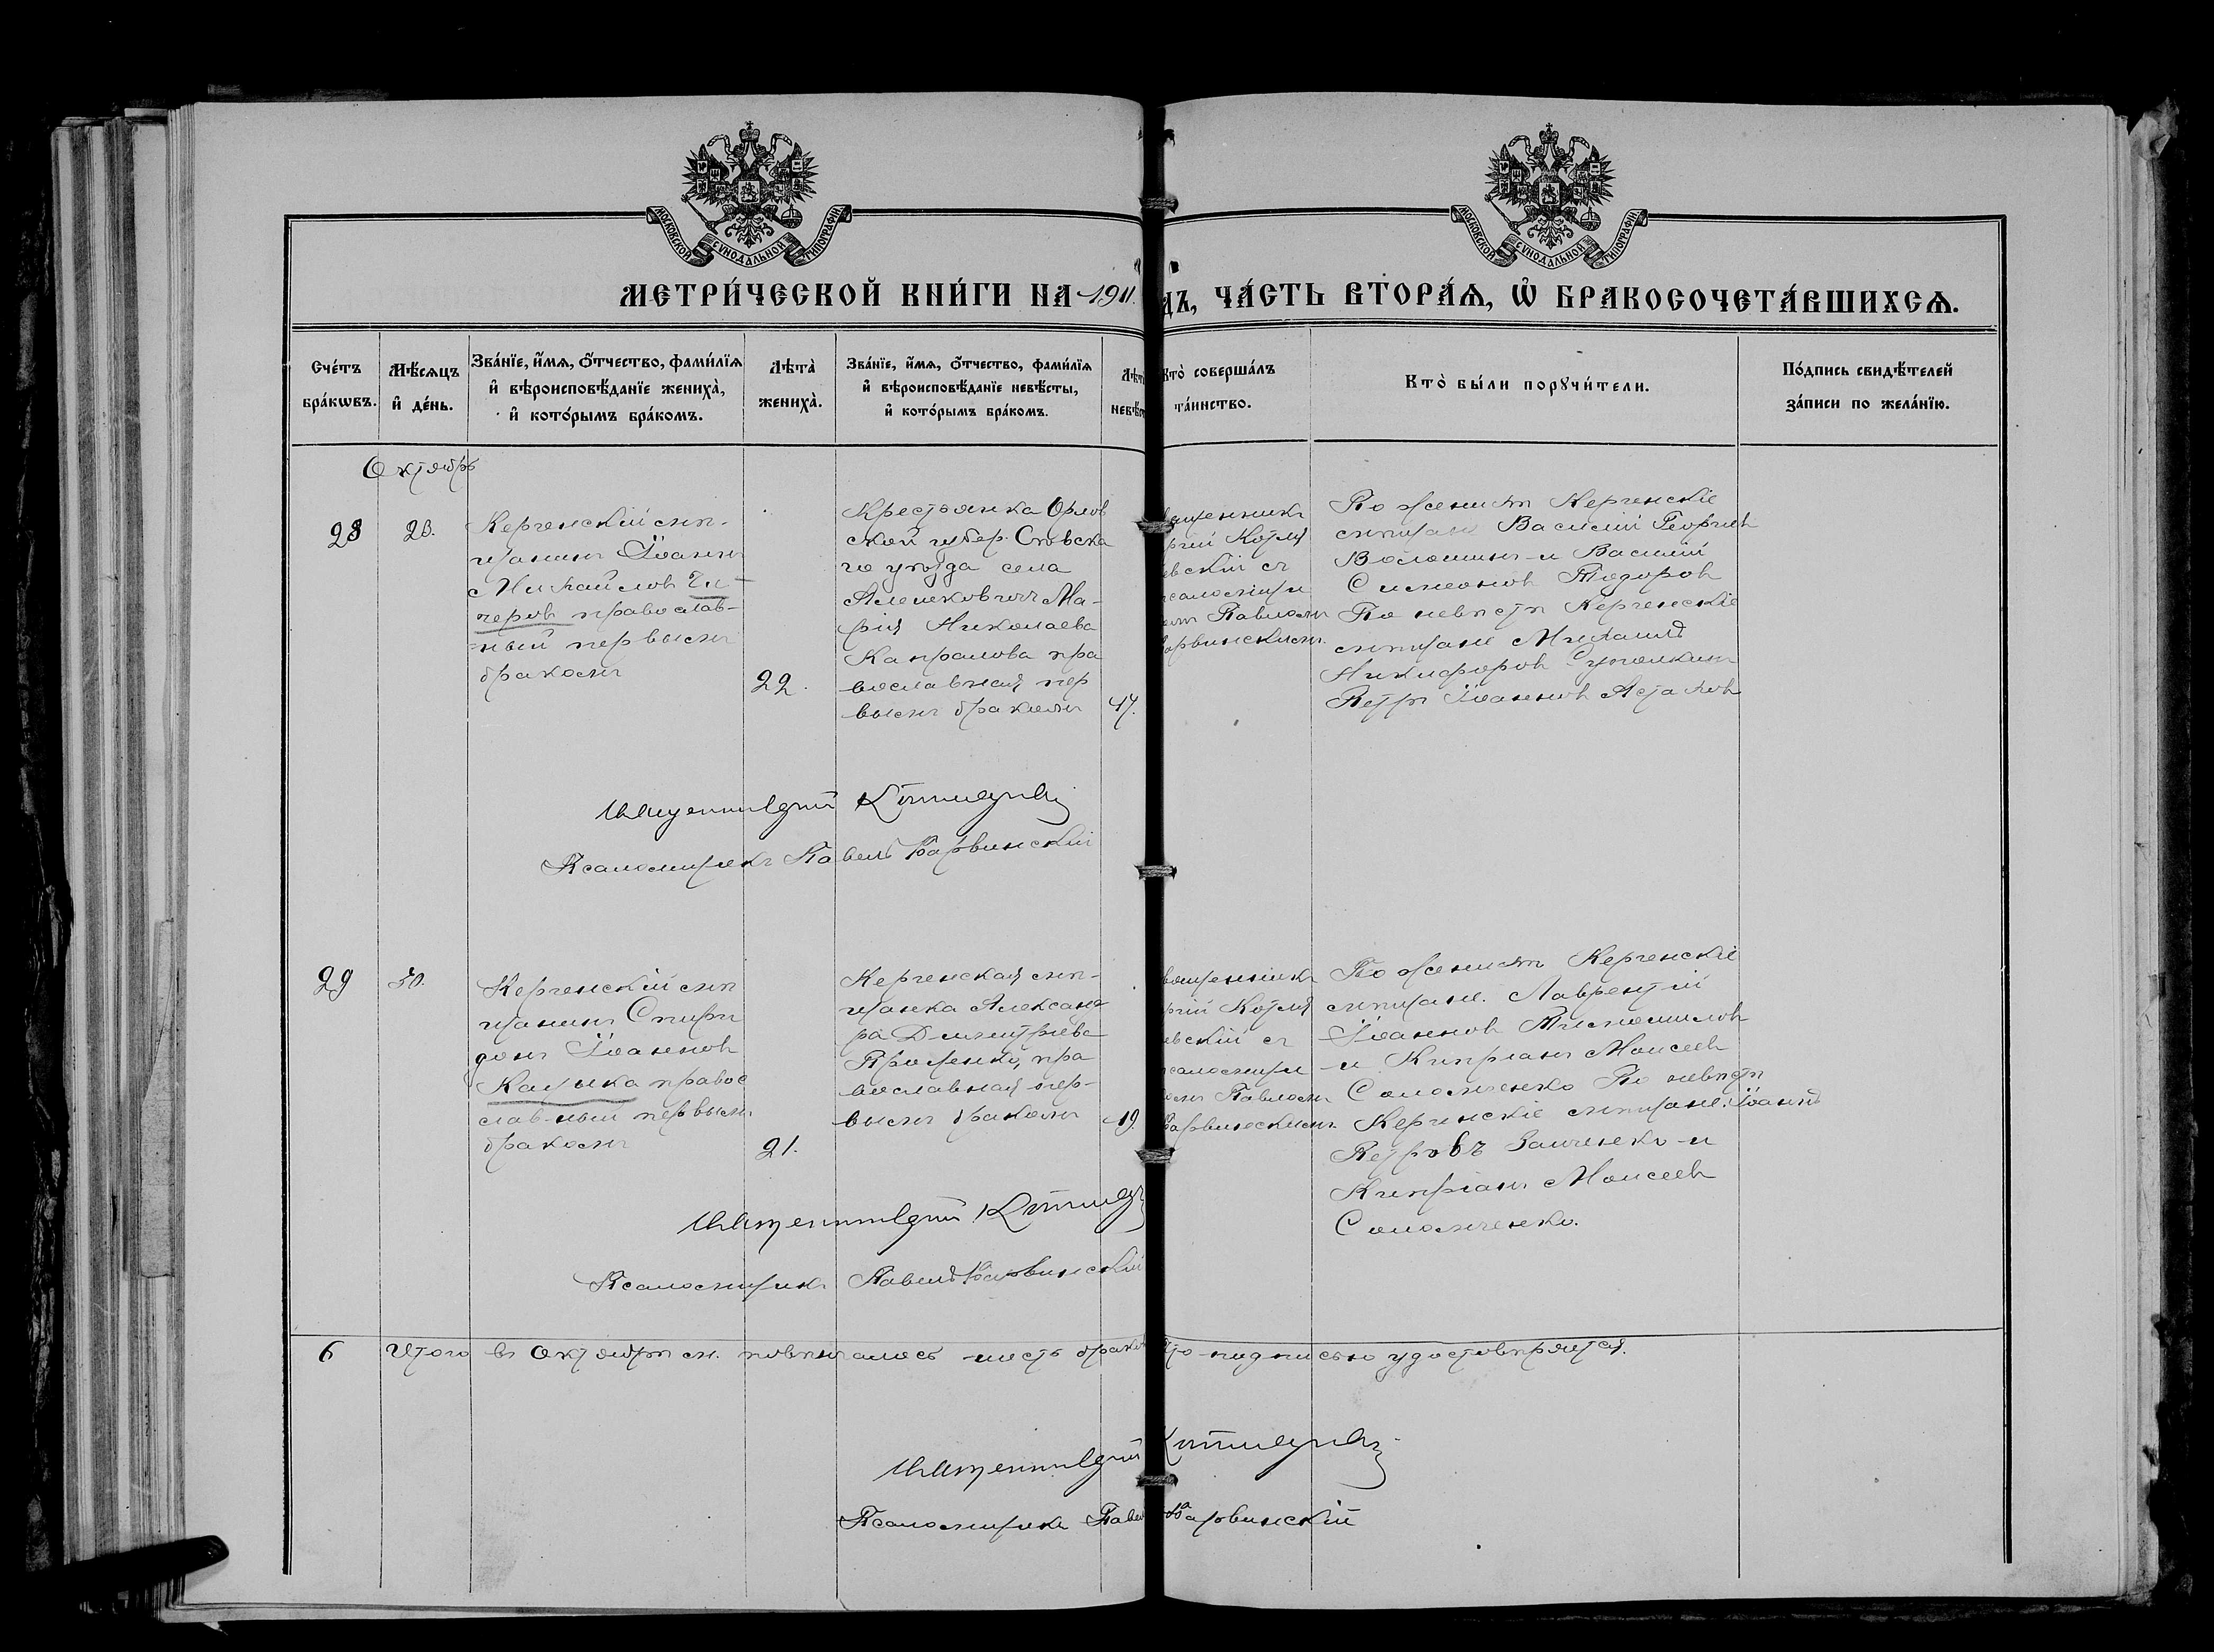 МОСКОВСКОЙ СѴНОДАЛЬНОЙ ТИПОГРАФІИ
МОСКОВСКОЙ СѴНОДАЛЬНОЙ ТИПОГРАФІИ
МЕТРИ́ЧЕСКОЙ КНИ́ГИ НА 1911
ДЪ, ЧА́СТЬ ВТОРА́Ѧ, Ѡ҆ БРАКОСОЧЕТА́ВШИХСѦ.
Сче́тъ
бра́кѡвъ.
Мѣ́сяцъ
и҆ де́нь.
Зва́нїе, и҆́мѧ, О҆́тчество, фами́лїѧ
и҆ вѣроисповѣ́данїе жениха̀,
и҆ кото́рымъ бра́комъ.
Лѣта̀
жениха̀.
Зва́нїе, и҆́мѧ, О҆́тчество, фами́лїѧ
и҆ вѣроисповѣ́данїе невѣ́сты,
и҆ кото́рымъ бра́комъ.
Лѣт
невѣ́ст
Кто̀ соверша́лъ
та́инство.
Кто̀ бы́ли порꙋчи́тели.
По́дпись свидѣ́телей
за́писи по жела́нїю.
Октябрь
28
23.
Керченскій мѣ-
щанинъ Іоаннъ
Михайловъ Чи-
черовъ православ-
ный первымъ
бракомъ
22.
Крестьянка Орлов
ской губер. Сѣвска
го уѣзда села
Алешковичъ Ма-
рия Николаева
Капралова пра
вославная пер
вымъ бракомъ
17.
ященникъ
ргій Котля
евскій съ
псаломщи
омъ Павломъ
Варвинскимъ.
По женихѣ Керченскіе
мѣщане Василій Георгіев
Волошинъ и Василій
Симеоновъ Тодоровъ
По невѣстѣ Керченскіе
мѣщане Михаилъ
Никифоровъ
Петръ Іоанновъ Астаховъ
Священникъ Котляревскій
Псаломщикъ Павелъ Варвинскій
29
30.
Керченскій мѣ
щанинъ Спири
донъ Іоанновъ
правос
лавный первымъ
бракомъ
21.
Керченская мѣ-
щанка Александ
ра Димитріева
Проценко, пра
вославная пер-
вымъ бракомъ
19.
вященникъ
ргій Котля
евскій съ
псаломщи
омъ Павломъ
Варвинскимъ.
По женихѣ Керченскіе
мѣщане. Лаврентій
Іоанновъ
и Кипріанъ Моисеевъ
Соломченко По невѣстѣ
Керченскіе мѣщане: Іоаннъ
Петровъ Заиченко и
Кипріанъ Моисеевъ
Соломченко.
Священникъ Котля
Псаломщикъ Павелъ Варвинскій
6 Итого въ Октябрѣ м. повѣнчалось шесть браковъ что подписью удостовѣряется.
Священникъ Котляревскій
Псаломщикъ Павелъ Варвинскій